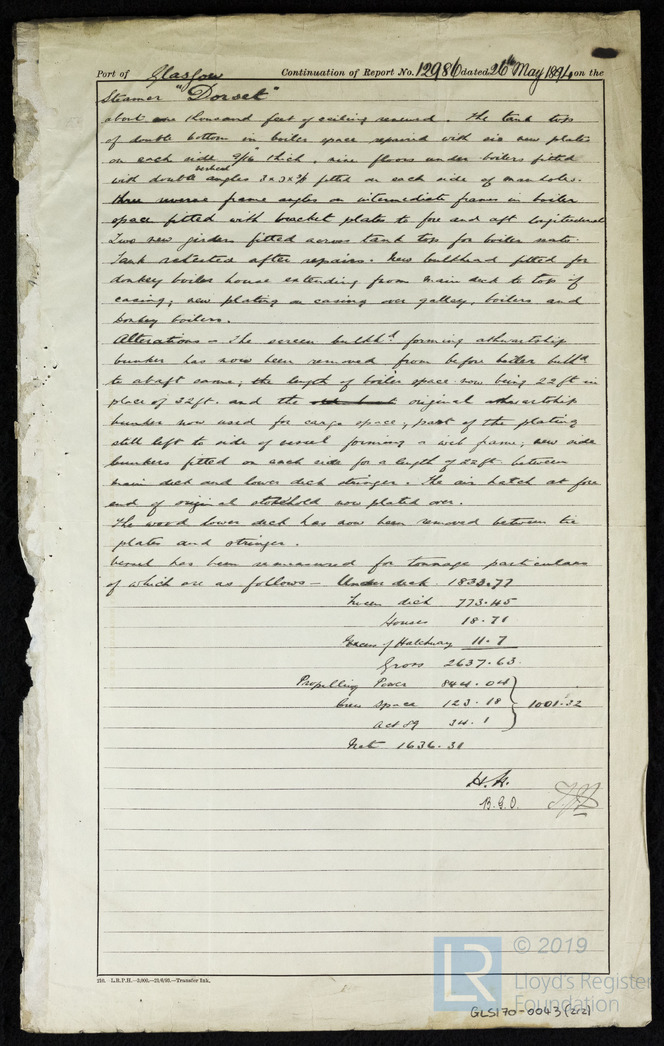 Port of Glasgow Continuation of Report No. 12986 dated 26th May 1891, on the
Steamer "Dorset"
about one thousand feet of ceiling renewed. The tank top
of double bottom in boiler space repaired with six new plates
on each side 9/16" thick, nine floors under boilers fitted
vertical
with double angles 3x3x fitted on each side of manholes.
three reverse frame angles on intermediate frames in boiler
space fitted with bracket plates to fore and aft longitudinal
Two new girders fitted across tank top for boiler seats.
Tank retested after repairs. New bulkhead fitted for
donkey boiler house extending from main deck to top of
casing, new plating on casing over galley, boilers and
donkey boilers.
Alterations - The screen bulkhd. forming athwartship
bunker has now been removed from before boiler bulkhd
to abaft same, the length of boiler space now being 22 ft in
place of 32 ft. and the original athwartship
bunker now used for cargo space, part of the plating
still left to side of vessel forming a web frame, new side
bunkers fitted on each side for a length of 22 ft. between
main deck and lower deck stringer. The air hatch at fore
end of original stokehold now plated over.
The wood lower deck has now been removed between tie
plates and stringer.
Vessel has been remeasured for tonnage particulars
of which are as follows - Under deck 1833.77
Tween deck 773.45
Houses 18.71
Excess of Hatchway 11.7
Gross 2637.63
Propelling Power 844.04
Crew space 123.18 } 1001.32
Act 89 34.1
Net 1636.31
H.K.
B.G.O.
210. L.R.P.H.—3,000.—21/6/90.—Transfer Ink.
LR © 2019
Lloyd's Register
Foundation
GLS170-0043 (2/2)